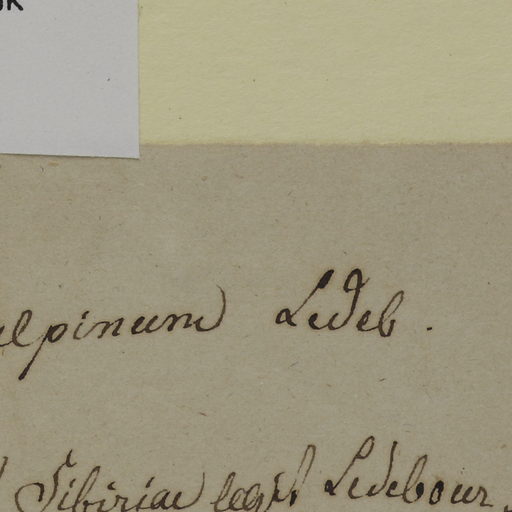 alpinum Ledeb.
Sibiriae legit Ledebour.